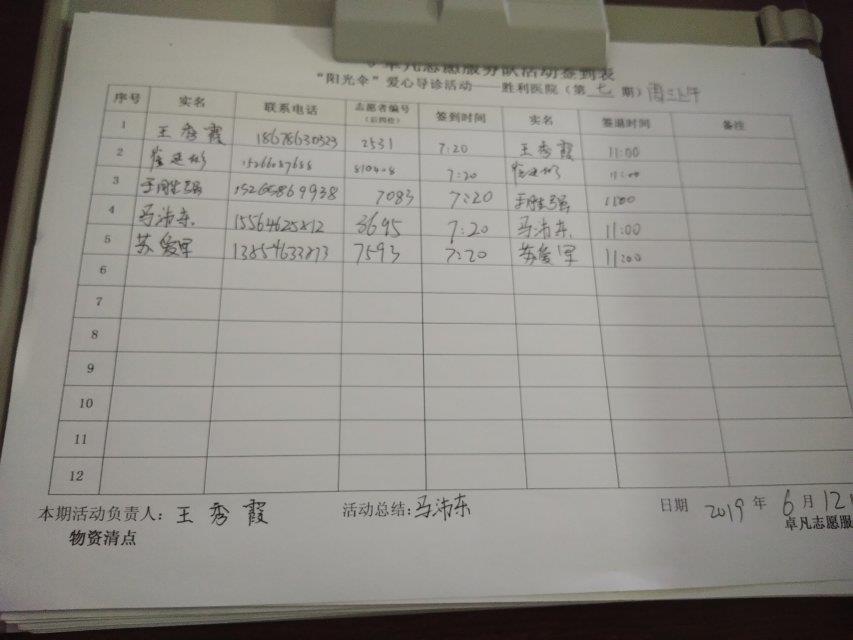 卓凡志愿服务队活动签到表
“阳光伞”爱心导诊活动——胜利医院（第七期）周三上午
序号 实名 联系电话 志愿者编号（后四位） 签到时间 实名 签退时间 备注
1 王秀霞 18678630323 2531 7:20 王秀霞 11:00
2 7:20 11:00
3 15265869938 7083 7:20 1100
4 马沛东 15564625812 3695 7:20 马沛东 11:00
5 苏爱军 13854633873 7593 7:20 苏爱军 11:00
6
7
8
9
10
11
12
本期活动负责人：王秀霞 活动总结：马沛东 日期 2019年6月12
物资清点 卓凡志愿服